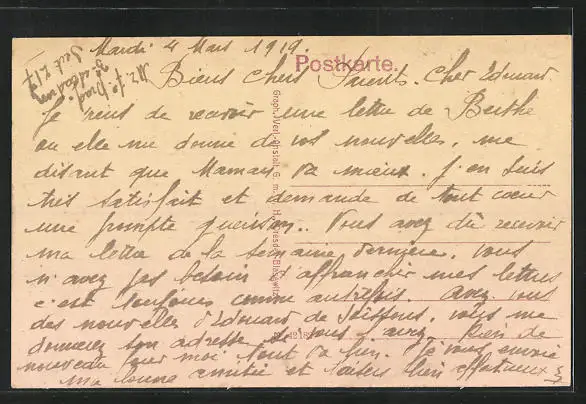 Mardi 4 Mars 1919.
Postkarte.
Biens chers Parents. Cher Edouard
Je viens de recevoir une lettre de Berthe
ou elle me donne de vos nouvelles, me
disant que Maman va mieux. J'en suis
très satisfait et demande de tout coeur
une prompte guérison.. Vous avez dû recevoir
ma lettre de la semaine dernière. Vous
n'avez pas besoin d'affranchir mes lettres
c'est toujours comme autrefois. Avez vous
des nouvelles d'Edouard de Soissons, vous me
donnerez son adresse si vous l'avez. Rien de
nouveau pour moi tout va bien. Je vous envoie
ma bonne amitié et baisers bien affectueux
Graph. Verl.-Anstalt G. m. b. H. Dresden-Blasewitz